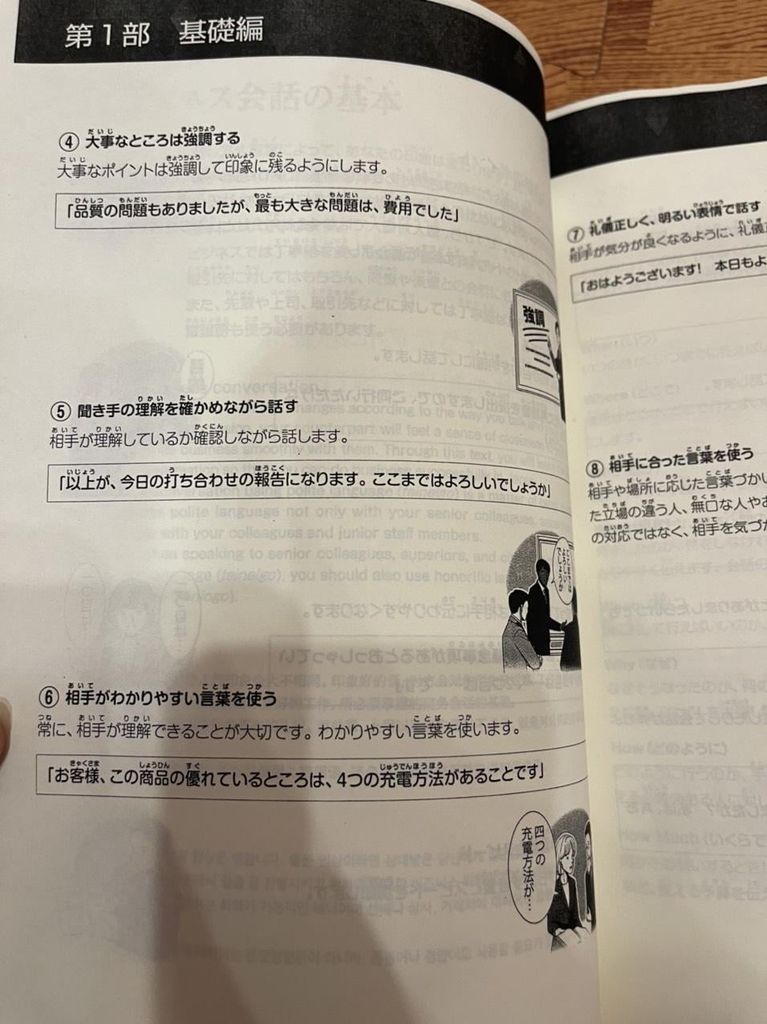 第1部 基礎編
④ 大事なところは強調する
大事なポイントは強調して印象に残るようにします。
「品質の問題もありましたが、最も大きな問題は、費用でした」
強調
⑤ 聞き手の理解を確かめながら話す
相手が理解しているか確認しながら話します。
「以上が、今日の打ち合わせの報告になります。ここまではよろしいでしょうか」
ここまでは
よろしい
でしょうか
⑥ 相手がわかりやすい言葉を使う
常に、相手が理解できることが大切です。わかりやすい言葉を使います。
「お客様、この商品の優れているところは、4つの充電方法があることです」
四つの
充電方法が…
⑦ 礼儀正しく、明るい表情で話す
相手が気分が良くなるように、礼儀
「おはようございます! 本日もよ
⑧ 相手に合った言葉を使う
相手や場所に応じた言葉づかい
た立場の違う人、無口な人やお
の対応ではなく、相手を気づか